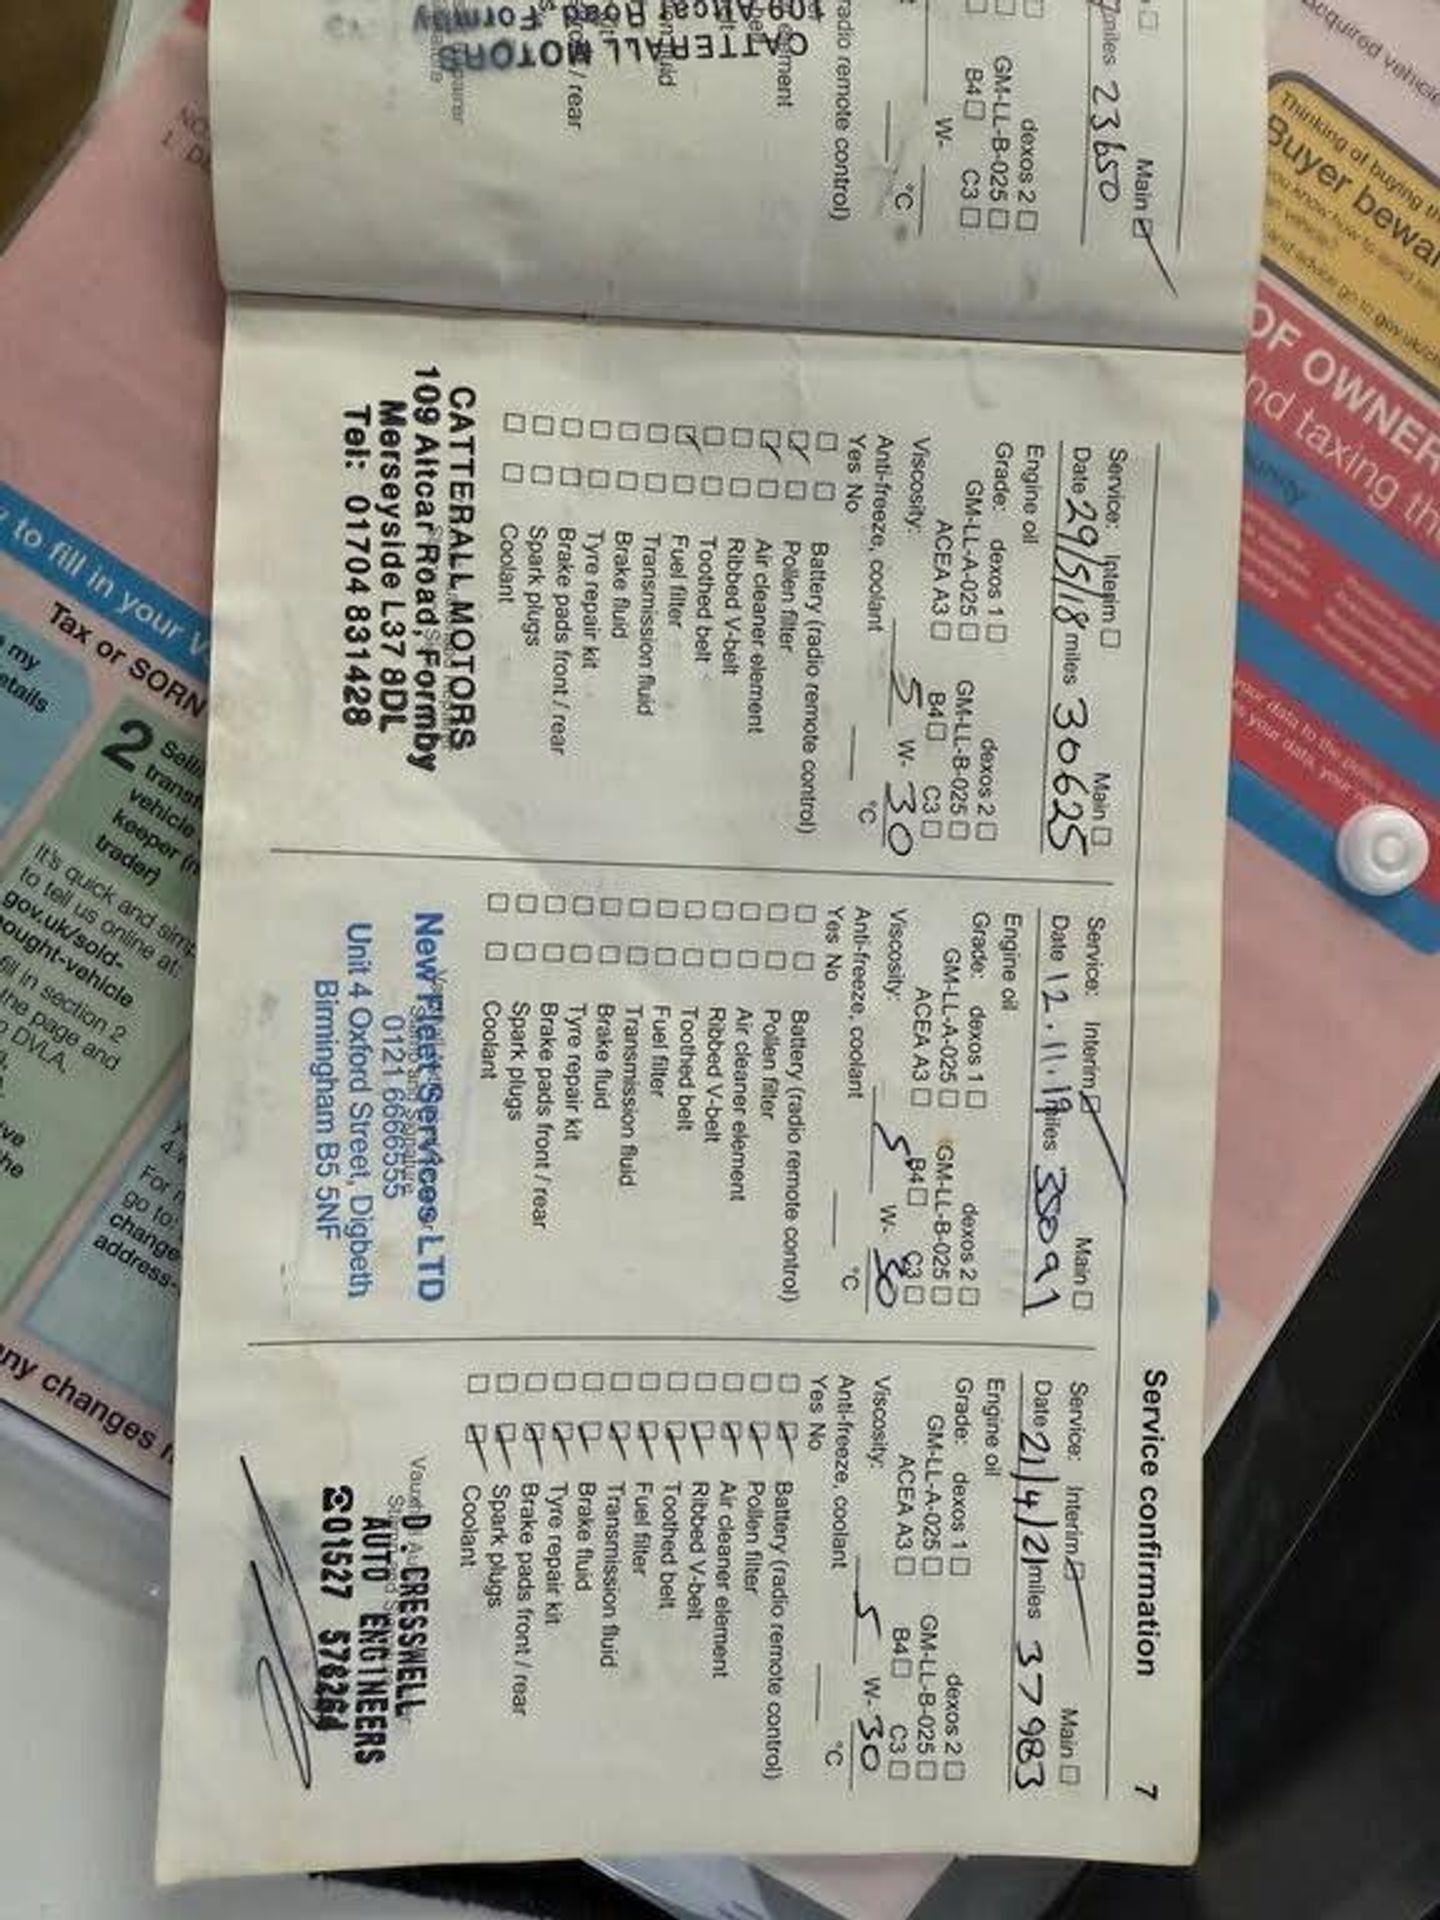 Service confirmation 7
Service: Interim Main
Date 29/5/18 miles 30625
Engine oil
Grade: dexos 1 dexos 2
GM-LL-A-025 GM-LL-B-025
ACEA A3 B4 C3
Viscosity: 5 W- 30
Anti-freeze, coolant °C
Yes No
Battery (radio remote control)
Pollen filter
Air cleaner element
Ribbed V-belt
Toothed belt
Fuel filter
Transmission fluid
Brake fluid
Tyre repair kit
Brake pads front / rear
Spark plugs
Coolant
CATTERALL MOTORS
109 Altcar Road, Formby
Merseyside L37 8DL
Tel: 01704 831428
Service: Interim Main
Date 12.11.19 miles 35091
Engine oil
Grade: dexos 1 dexos 2
GM-LL-A-025 GM-LL-B-025
ACEA A3 B4 C3
Viscosity: 5 W- 30
Anti-freeze, coolant °C
Yes No
Battery (radio remote control)
Pollen filter
Air cleaner element
Ribbed V-belt
Toothed belt
Fuel filter
Transmission fluid
Brake fluid
Tyre repair kit
Brake pads front / rear
Spark plugs
Coolant
New Fleet Services LTD
0121 6666555
Unit 4 Oxford Street, Digbeth
Birmingham B5 5NF
Service: Interim Main
Date 21/4/21 miles 37983
Engine oil
Grade: dexos 1 dexos 2
GM-LL-A-025 GM-LL-B-025
ACEA A3 B4 C3
Viscosity: 5 W- 30
Anti-freeze, coolant °C
Yes No
Battery (radio remote control)
Pollen filter
Air cleaner element
Ribbed V-belt
Toothed belt
Fuel filter
Transmission fluid
Brake fluid
Tyre repair kit
Brake pads front / rear
Spark plugs
Coolant
D. CRESSWELL
AUTO ENGINEERS
☎01527 578264
Main
miles 23650
dexos 2
GM-LL-B-025
B4 C3
W-
°C
radio remote control)
/ rear
CATTERALL MOTORS
109 Altcar Road Formby
Thinking of buying
Buyer bewar
OF OWNER
and taxing th
acquired vehicle
to fill in your V
Tax or SORN
my
etails
2
transf
vehicle
keeper (n
trader)
It's quick and simp
to tell us online at:
gov.uk/sold-
bought-vehicle
fill in section 2
the page and
DVLA,
go to:
change
address-
any changes